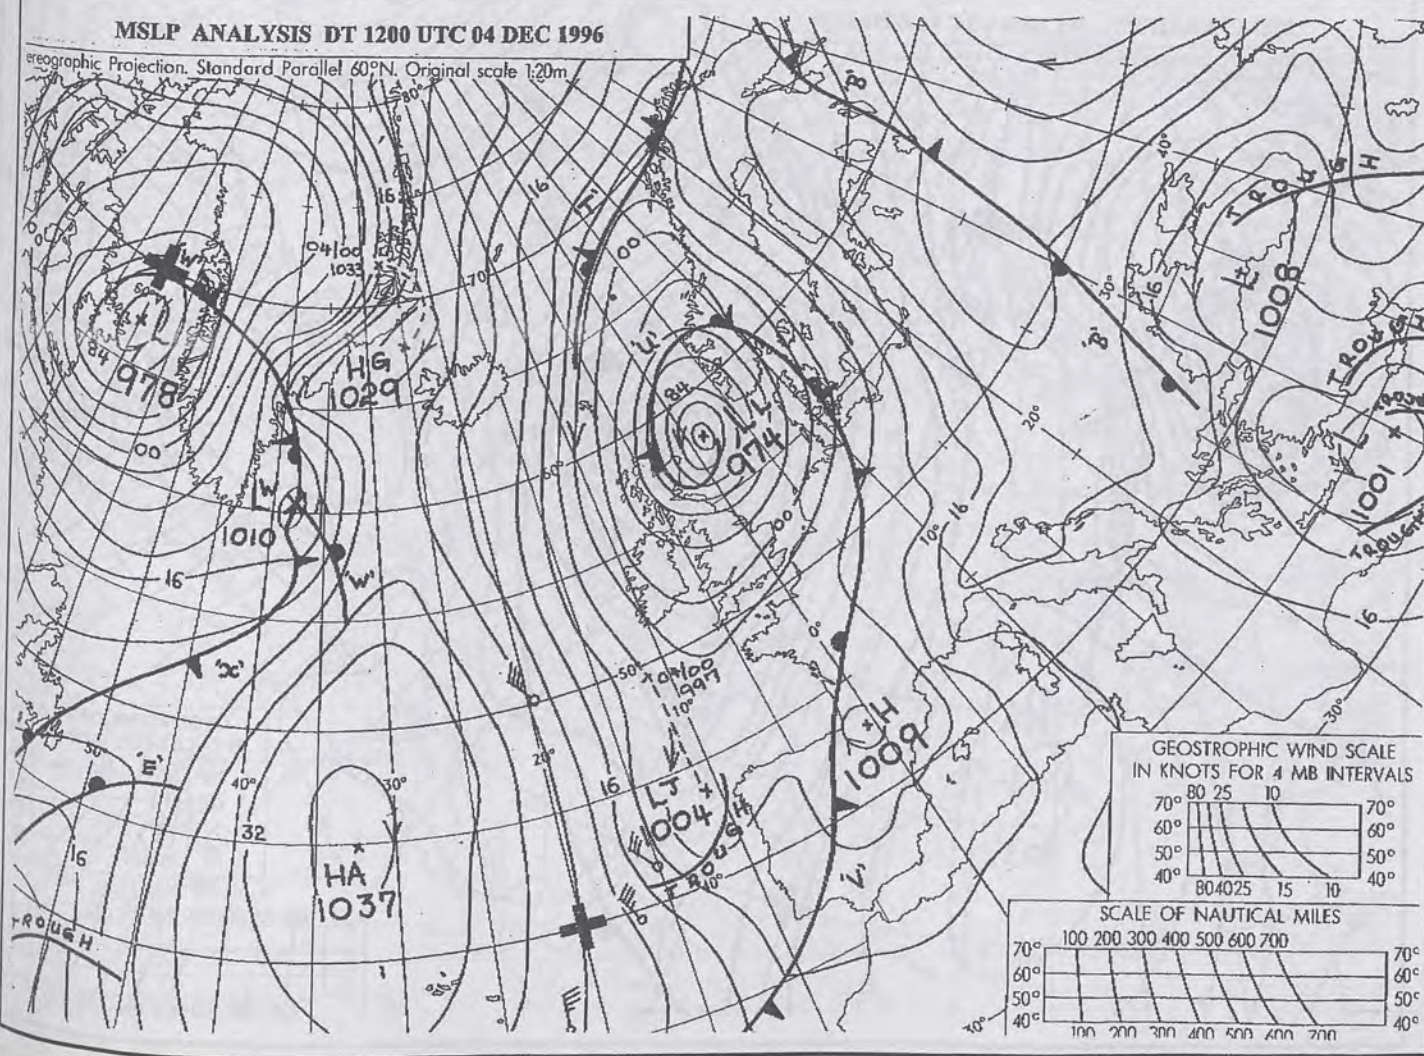 MSLP ANALYSIS DT 1200 UTC 04 DEC 1996
ereographic Projection. Standard Parallel 60°N. Original scale 1:20m
80°
'B'
40°
16
'T'
16
TROUGH
'W'
04/00
1033
00
70°
30°
16
L
1008
L
84
978
HG
1029
'L'
'B'
TROUGH
84
LJ
974
20°
L
1001
TROUGH
00
60°
LW
1010
00
10°
16
16
'W'
16
'X'
0°
50°
04/00
997
10°
H
1009
30°
50°
'E'
40°
30°
20°
16
LJ
1004
TROUGH
40°
32
16
HA
1037
'L'
TROUGH
GEOSTROPHIC WIND SCALE
IN KNOTS FOR 4 MB INTERVALS
80 25 10
70° 70°
60° 60°
50° 50°
40° 40°
80 40 25 15 10
SCALE OF NAUTICAL MILES
100 200 300 400 500 600 700
70° 70°
60° 60°
50° 50°
40° 40°
100 200 300 400 500 600 700